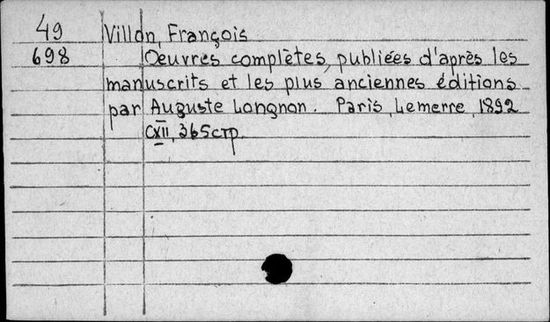 49 Villon, François
698 Oeuvres complètes, publiées d'après les
manuscrits et les plus anciennes éditions
par Auguste Longnon. Paris, Lemerre, 1892
CXII, 365 стр.